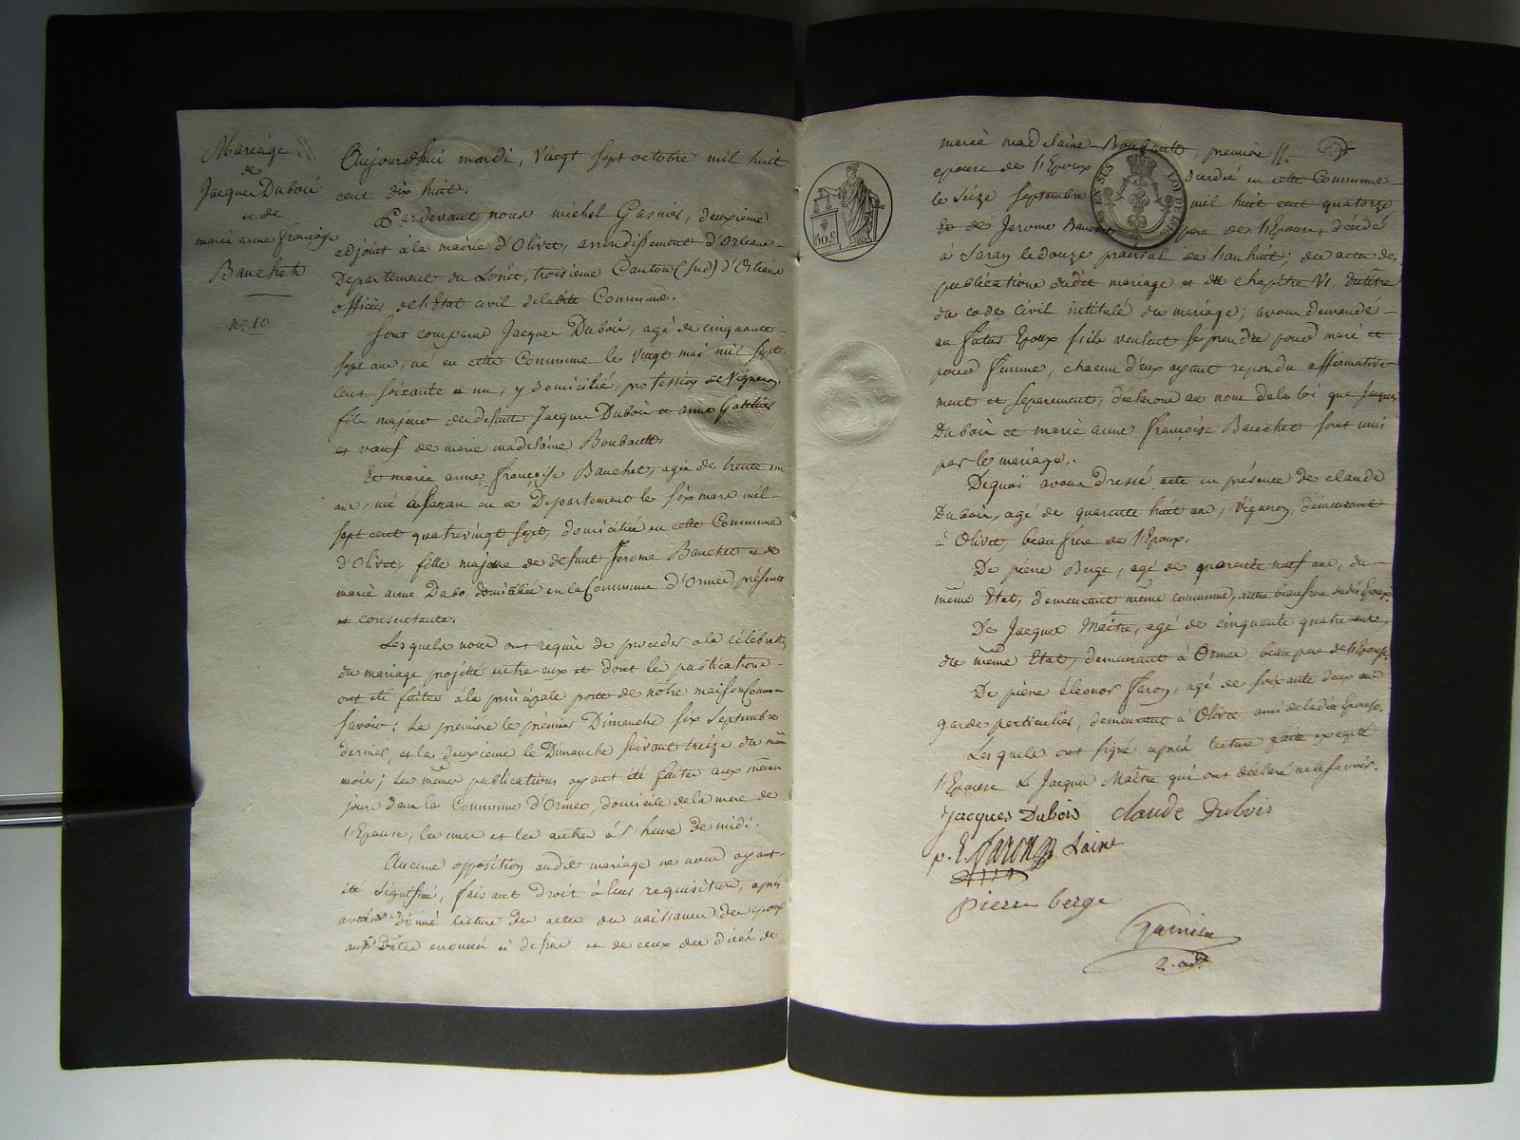 Mariage
de
Jacques Dubois
et de
marie anne françoise
Bauchet
No. 10
Aujourd'hui mardi, vingt sept octobre mil huit
cent dix huit.
Pardevant nous michel Garnier, deuxième
adjoint à la mairie d'Olivet, arrondissement d'Orléans
Departement du Loiret, troisieme Canton (sud) d'Orléans
officier de l'Etat civil de ladite Commune.
Sont comparus Jacques Dubois, agé de cinquante
sept ans, né en cette Commune le vingt mai mil sept
cent soixante et un, y domicilié, profession de Vigneron,
fils majeur de defunt Jacques Dubois et anne
et veuf de marie madelaine Boubault
Et marie anne françoise Bauchet, agée de trente un
ans, née a Saran en ce Departement le six mars mil
sept cent quatrevingt sept, domiciliée en cette Commune
d'Olivet, fille majeure de defunt Jerome Bauchet et de
marie anne Dabo domiciliée en la Commune d'Ormes, présente
et consentante.
Lesquels nous ont requis de proceder a la célébration
du mariage projetté entre eux et dont les publications
ont été faites a la principale porte de nôtre maison Commune
Savoir : La premiere le premier Dimanche six Septembre
dernier, et la deuxieme le Dimanche suivant treize du même
mois ; les mêmes publications ayant été faites aux mêmes
jours dans la Commune d'Ormes, domicile de la mere de
l'Epouse, les unes et les autres à l'heure de midi.
Aucune opposition audit mariage ne nous ayant
été signifiée, faisant droit à leur requisition, après
avoir donné lecture des actes de naissance des epoux
enoncés et de ceux des décés de
marie madelaine Boubault, premiere
epouse de l'Epoux décédée en cette Commune
le seize Septembre mil huit cent quatorze
de Jerome Bauchet pere de l'Epouse, décédé
à Saran le douze prairial de l'an huit ; des actes de
publications dudit mariage et du chapitre VI du titre
du code civil intitulé du mariage ; avons demandé
au futurs Epoux s'ils veulent se prendre pour mari et
pour femme, chacun d'eux ayant repondu affirmative
ment et separement, déclarons au nom de la loi que Jacques
Dubois et marie anne françoise Bauchet sont unis
par le mariage.
Dequoi avons dressé acte en présence de claude
Dubois, agé de quarante huit ans, Vigneron, demeurant
à Olivet, beau frere de l'Epoux.
De pierre Berge, agé de quarante neuf ans, du
même Etat, demeurant même commune, autre beau frere dudit Epoux,
De Jacques Maître, agé de cinquante quatre ans,
du même Etat, demeurant à Ormes beau pere de l'Epouse,
De pierre éleonor Faron, agé de soixante deux ans
garde particulier, demeurant à Olivet ami de ladite Epouse.
Lesquels ont signé après lecture faite excepté
l'Epouse & Jacques Maître qui ont déclaré ne le savoir.
jacques Dubois claude Dubois
p. E. Faron
pierre berge
Garnier
2. adt.
50 C